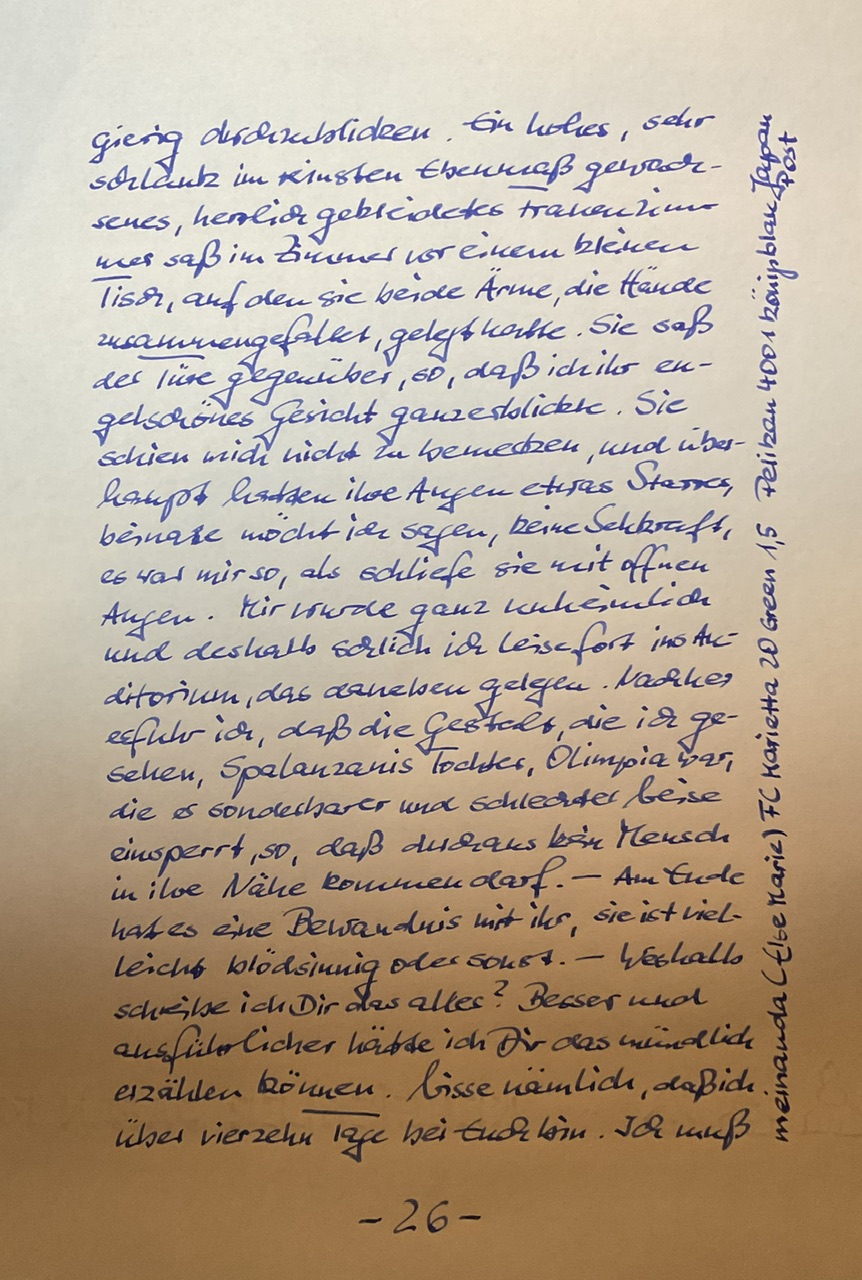 gierig durchzublicken. Ein hohes, sehr
schlank im reinsten Ebenmaß gewach-
senes, herrlich gekleidetes Frauenzim-
mer saß im Zimmer vor einem kleinen
Tisch, auf den sie beide Ärme, die Hände
zusammengefaltet, gelegt hatte. Sie saß
der Türe gegenüber, so, daß ich ihr en-
gelschönes Gesicht ganz erblickte. Sie
schien mich nicht zu bemerken, und über-
haupt hatten ihre Augen etwas Starres,
beinahe möcht ich sagen, keine Sehkraft,
es war mir so, als schliefe sie mit offnen
Augen. Mir wurde ganz unheimlich
und deshalb schlich ich leise fort ins Au-
ditorium, das daneben gelegen. Nachher
erfuhr ich, daß die Gestalt, die ich ge-
sehen, Spalanzanis Tochter, Olimpia war,
die er sonderbarer und schlechter Weise
einsperrt, so, daß durchaus kein Mensch
in ihre Nähe kommen darf. – Am Ende
hat es eine Bewandnis mit ihr, sie ist viel-
leicht blödsinnig oder sonst. – Weshalb
schreibe ich Dir das alles? Besser und
ausführlicher hätte ich Dir das mündlich
erzählen können. Wisse nämlich, daß ich
über vierzehn Tage bei Euch bin. Ich muß
- 26 -
meinanda (Else Marie) FC Marietta 20 Green 1,5 Pelikan 4001 königsblau Japan
Post